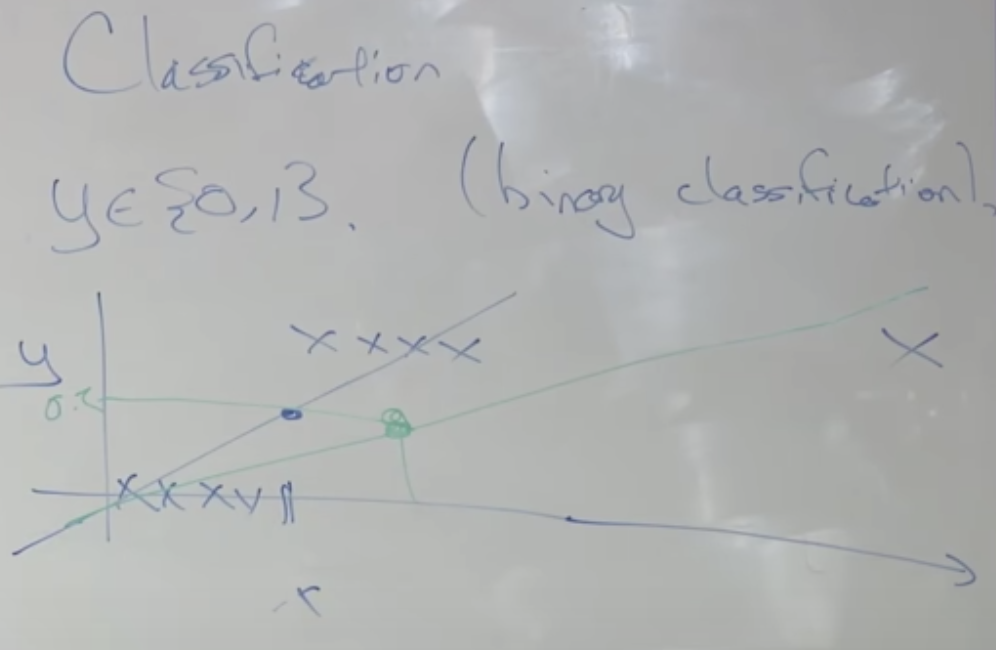 Classification
y∈{0,1}. (binary classification).
X X X X X
y
X X X